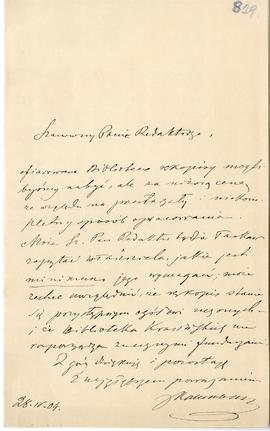 829.
Szanowny Panie Redaktorze,
ofiarowane Bibliotece rękopisy mogli-
byśmy nabyć, ale za niższą cenę
ze względu na przestarzały i niekom-
pletny sposób opracowania.
Może Sz. Pan Redaktor będzie łaskaw
zapytać właściciela, jakie jest
minimum jego wymagań; może
zechce uwzględnić, że rękopis stanie
się przystępnym ogółowi uczonych
i że Biblioteka Krasińskich nie
rozporządza znacznymi funduszami.
Z góry dziękuję i pozostaję
Z najgłębszym poważaniem
28. IV. 04.